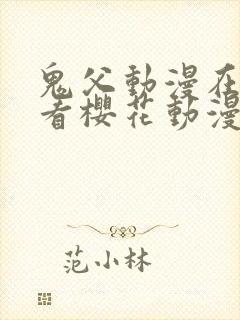 鬼父動漫在
看櫻花動漫
范小林